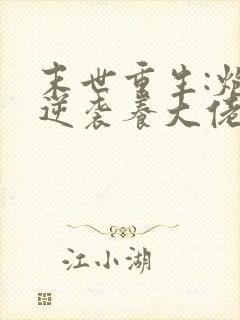 末世重生:炮
逆袭养大佬
江小湖